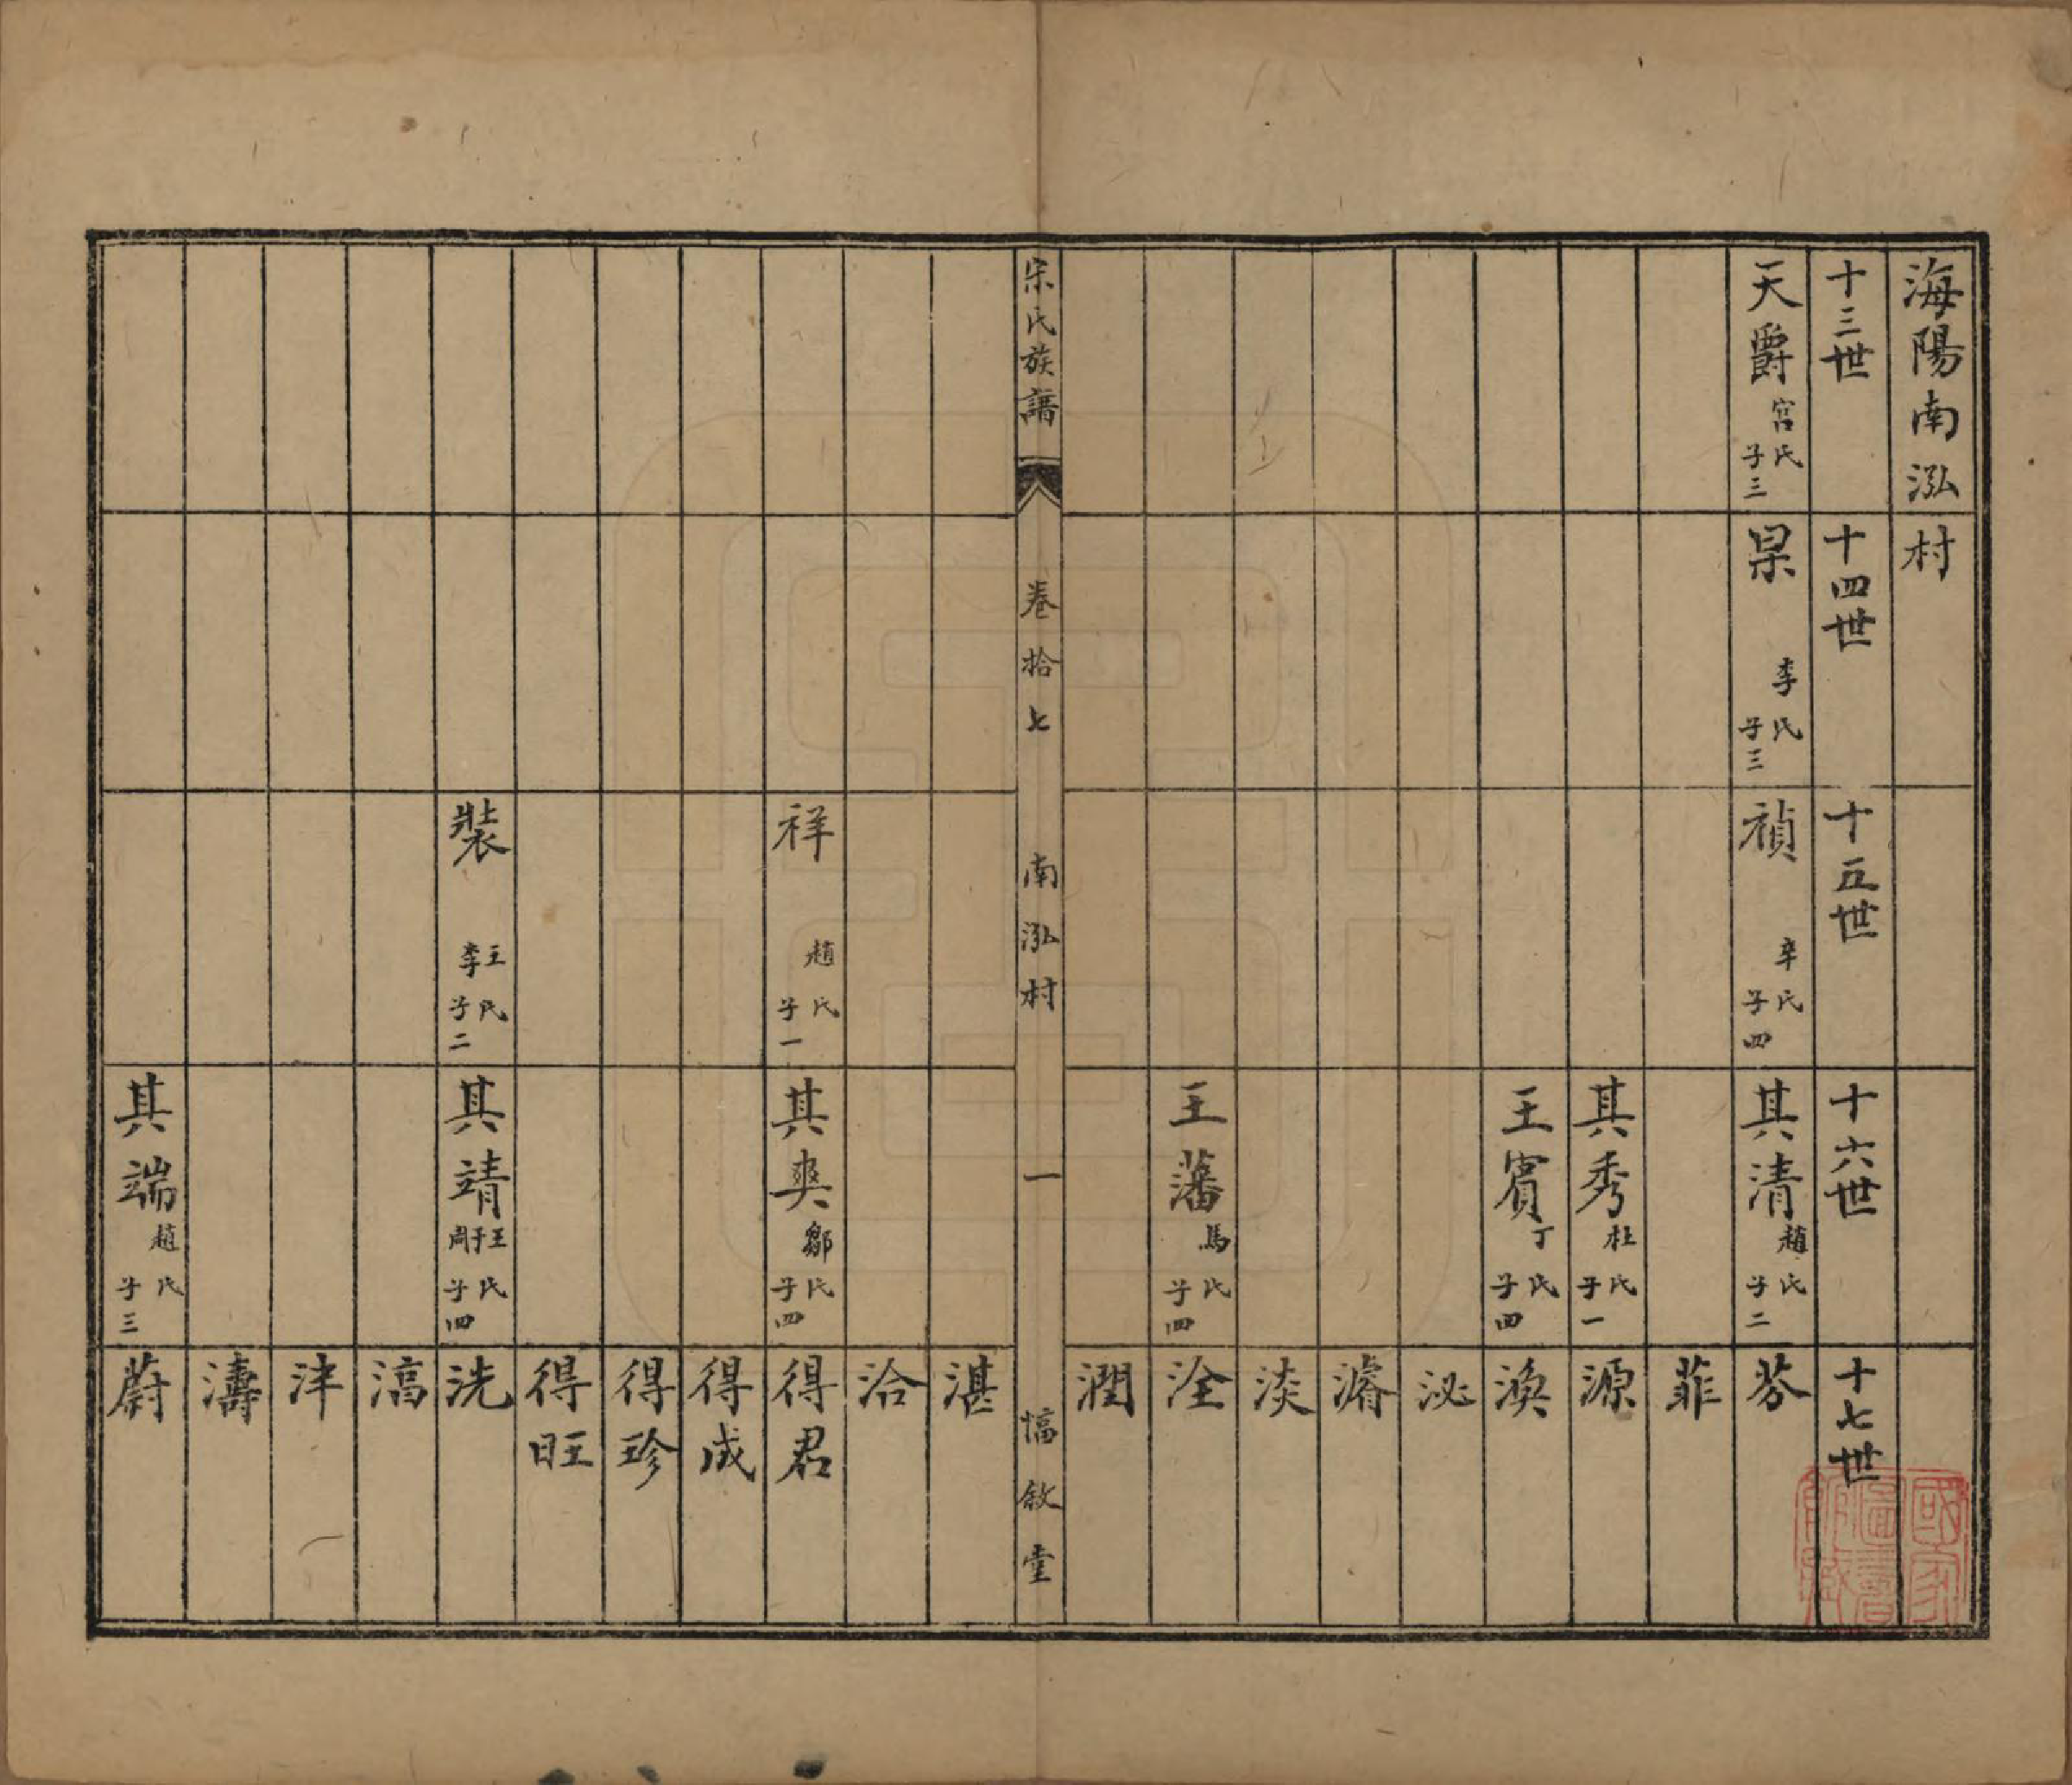 海陽南泓村
十三世
十四世
十五世
十六世
十七世
天爵 宮氏 子三
杲 李氏 子三
禎 辛氏 子四
其清 趙氏 子二
芬
菲
其秀 杜氏 子一
源
王賓 丁氏 子四
渙
泌
濬
淡
王藩 馬氏 子四
洤
潤
宋氏族譜
卷拾七
南泓村
一
惇敘堂
湛
洽
祥 趙氏 子一
其奭 鄒氏 子四
得君
得成
得珍
得旺
裝 王李氏 子二
其靖 王于周氏 子四
洗
滈
津
濤
其端 趙氏 子三
蔚
國家圖書館藏